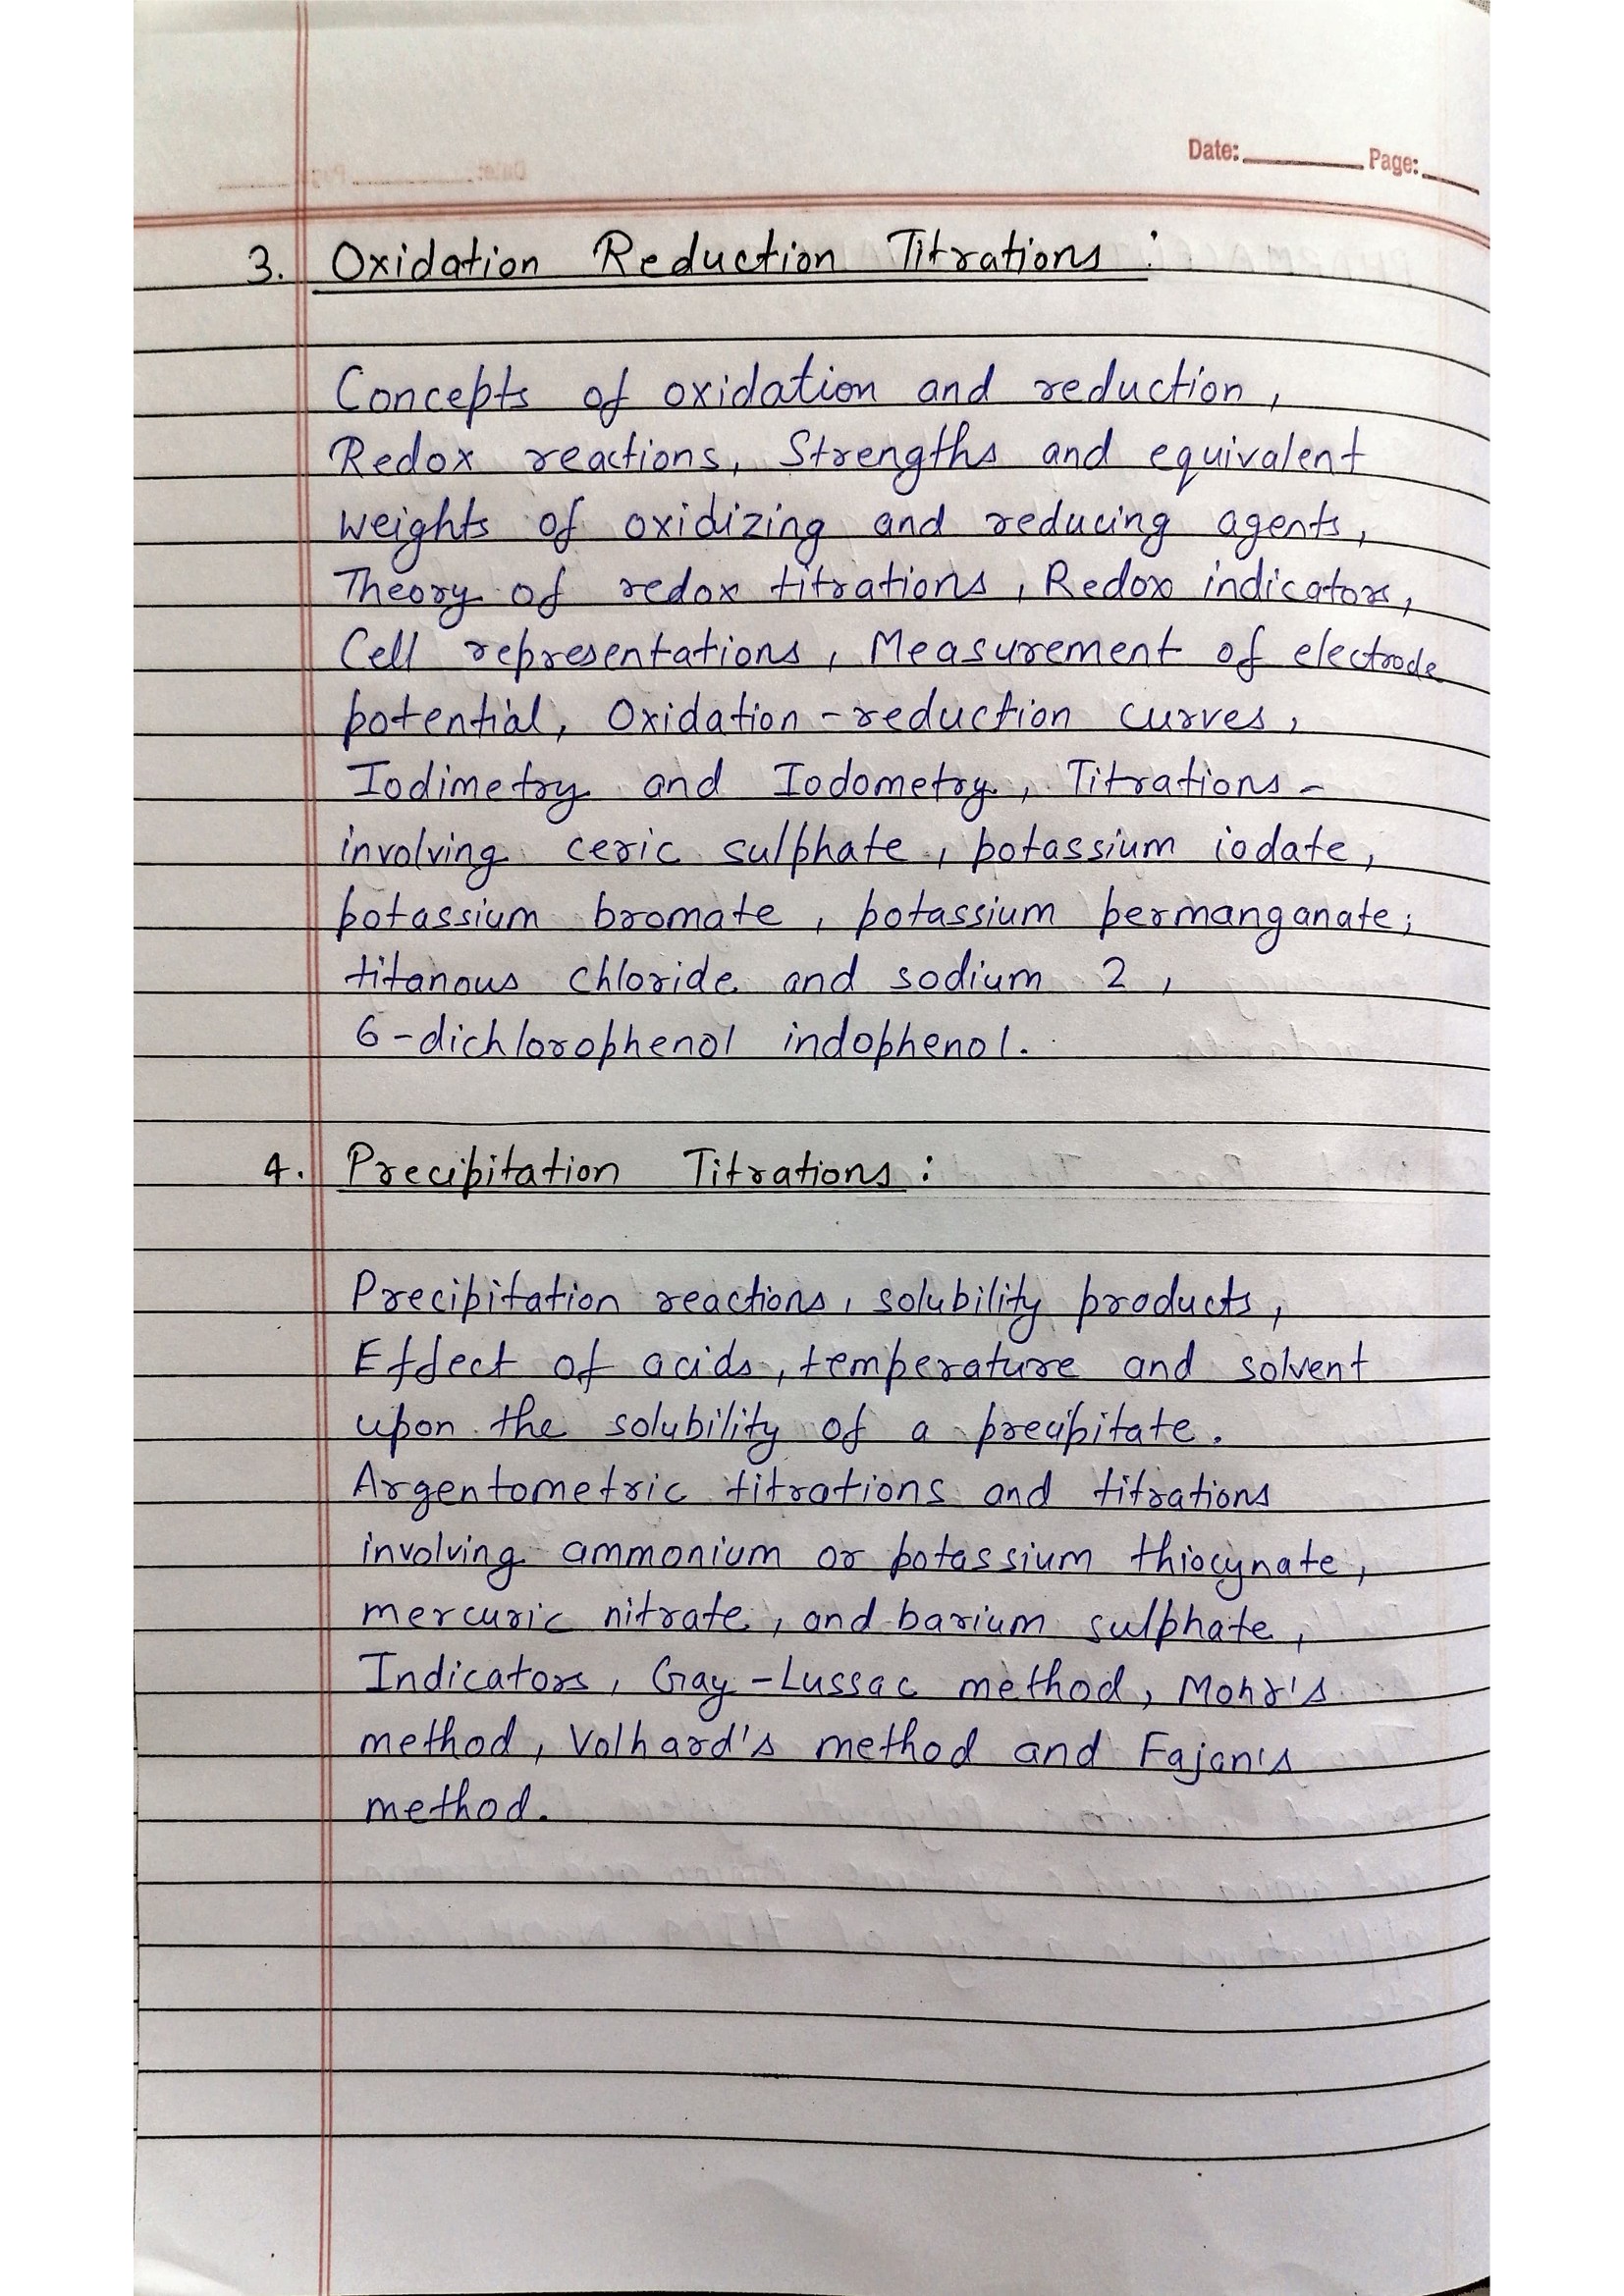 Date: Page:
3. Oxidation Reduction Titrations :
Concepts of oxidation and reduction,
Redox reactions, Strengths and equivalent
weights of oxidizing and reducing agents,
Theory of redox titrations, Redox indicators,
Cell representations, Measurement of electrode
potential, Oxidation-reduction curves,
Iodimetry and Iodometry, Titrations -
involving ceric sulphate, potassium iodate,
potassium bromate, potassium permanganate;
titanous chloride and sodium 2,
6-dichlorophenol indophenol.
4. Precipitation Titrations :
Precipitation reactions, solubility products,
Effect of acids, temperature and solvent
upon the solubility of a precipitate.
Argentometric titrations and titrations
involving ammonium or potassium thiocynate,
mercuric nitrate, and barium sulphate,
Indicators, Gay-Lussac method, Mohr's
method, Volhard's method and Fajan's
method.